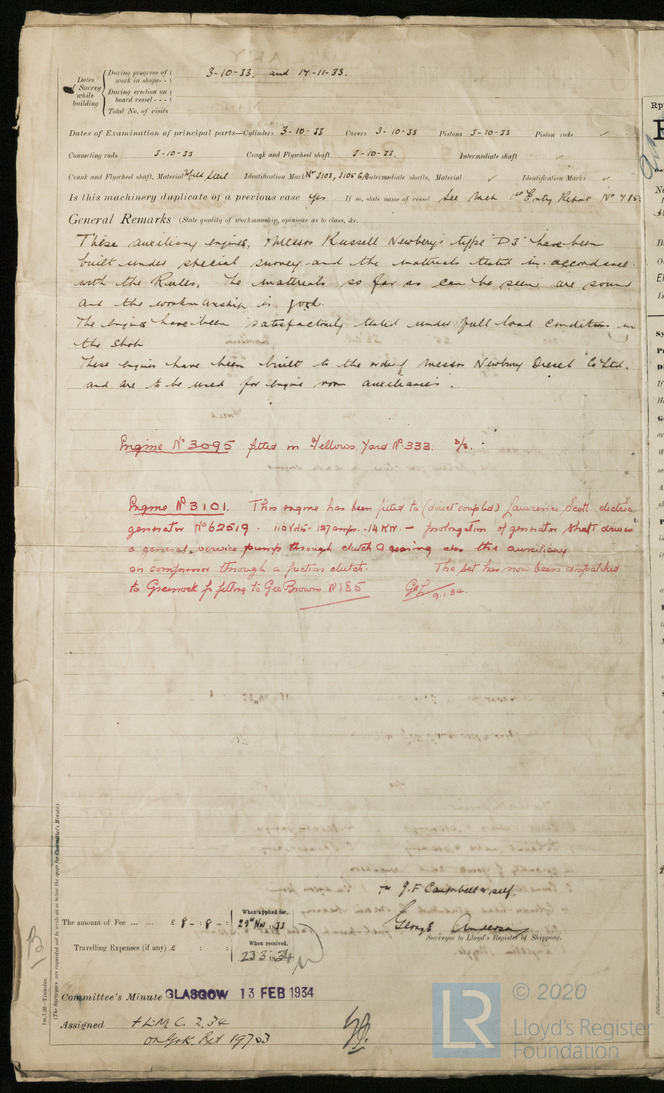 Dates of Survey while building
During progress of work in shops - - 3-10-33, and 17-11-33.
During erection on board vessel - - -
Total No. of visits
Dates of Examination of principal parts—Cylinders 3-10-33 Covers 3-10-33 Pistons 3-10-33 Piston rods ✓
Connecting rods 3-10-33 Crank and Flywheel shaft 3-10-33. Intermediate shaft ✓
Crank and Flywheel shaft, Material Mild Steel Identification Mark Nº 3103, Intermediate shafts, Material ✓ Identification Marks ✓
Is this machinery duplicate of a previous case Yes If so, state name of vessel See Mch 1st Entry Report Nº
General Remarks (State quality of workmanship, opinions as to class, &c.
These auxiliary engines, Messrs Russell Newbery's type "D3" have been
built under special survey and the materials tested in accordance
with the Rules. The materials so far as can be seen are sound
and the workmanship is good.
The engines have been satisfactorily tested under full load condition in
the shop
These engines have been built to the order of Messrs Newbury Diesel Co Ltd.
and are to be used for engine room auxiliaries.
Engine Nº 3095 fitted in Fellows Yard Nº 333.
Engine Nº 3101. This engine has been fitted to (direct coupled) Lawrence Scott electric
generator Nº 62519 - 110 volts - 127 amps - 14 KW. — prolongation of generator shaft drives
a general service pump through clutch & gearing also the auxiliary
air compressor through a friction clutch. The set has now been dispatched
to Greenock for fitting to Geo Browns Nº 185
for J.F. Campbell & self.
George Anderson
Surveyor to Lloyd's Register of Shipping.
The amount of Fee ... ... £ 8 - : 8 - :
When applied for,
29th Nov. 33
Travelling Expenses (if any) £ : :
When received,
23.3.1934
Committee's Minute GLASGOW 13 FEB 1934
Assigned + LMC 2.34
on Grk. Rpt 19703
© 2020
LR
Lloyd's Register
Foundation